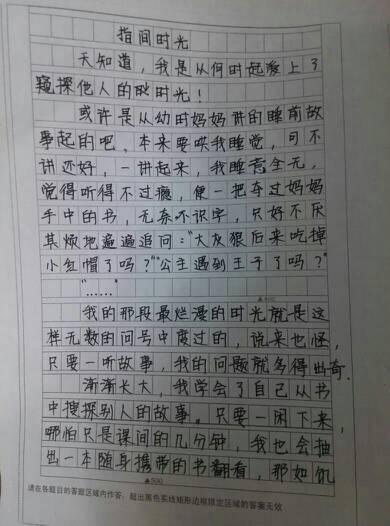 指间时光
天知道，我是从何时起爱上了
窥探他人的时光！
或许是从幼时妈妈讲的睡前故
事起的吧。本来要哄我睡觉，可不
讲还好，一讲起来，我睡意全无，
觉得听得不过瘾，便一把夺过妈妈
手中的书，无奈不识字，只好不厌
其烦地遍遍追问：“大灰狼后来吃掉
小红帽了吗？”“公主遇到王子了吗？”
“……”
▲400
我的那段最烂漫的时光就是这
样无数的问号中度过的，说来也怪，
只要一听故事，我的问题就多得出奇。
渐渐长大，我学会了自己从书
中搜探别人的故事。只要一闲下来，
哪怕只是课间的几分钟，我也会抽
出一本随身携带的书翻看，那如饥
▲500
请在各题目的答题区域内作答，超出黑色实线矩形边框限定区域的答案无效